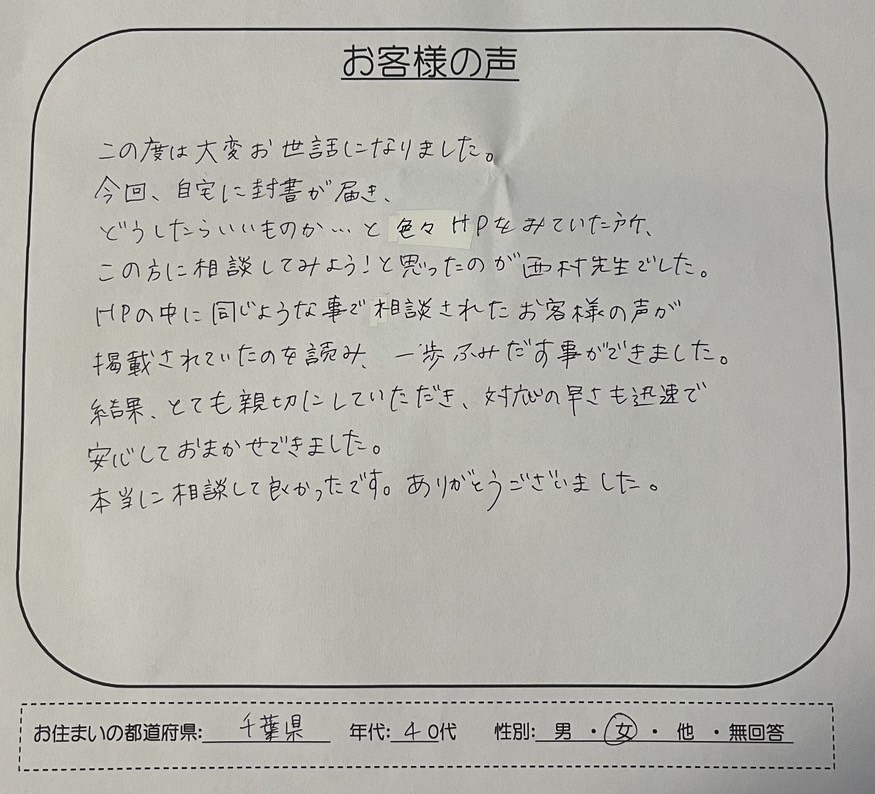 お客様の声
この度は大変お世話になりました。
今回、自宅に封書が届き、
どうしたらいいものか…と色々HPをみていた所、
この方に相談してみよう!と思ったのが西村先生でした。
HPの中に同じような事で相談されたお客様の声が
掲載されていたのを読み、一歩ふみだす事ができました。
結果、とても親切にしていただき、対応の早さも迅速で
安心しておまかせできました。
本当に相談して良かったです。ありがとうございました。
お住まいの都道府県: 千葉県 年代: 40代 性別: 男 ・ 女 ・ 他 ・ 無回答